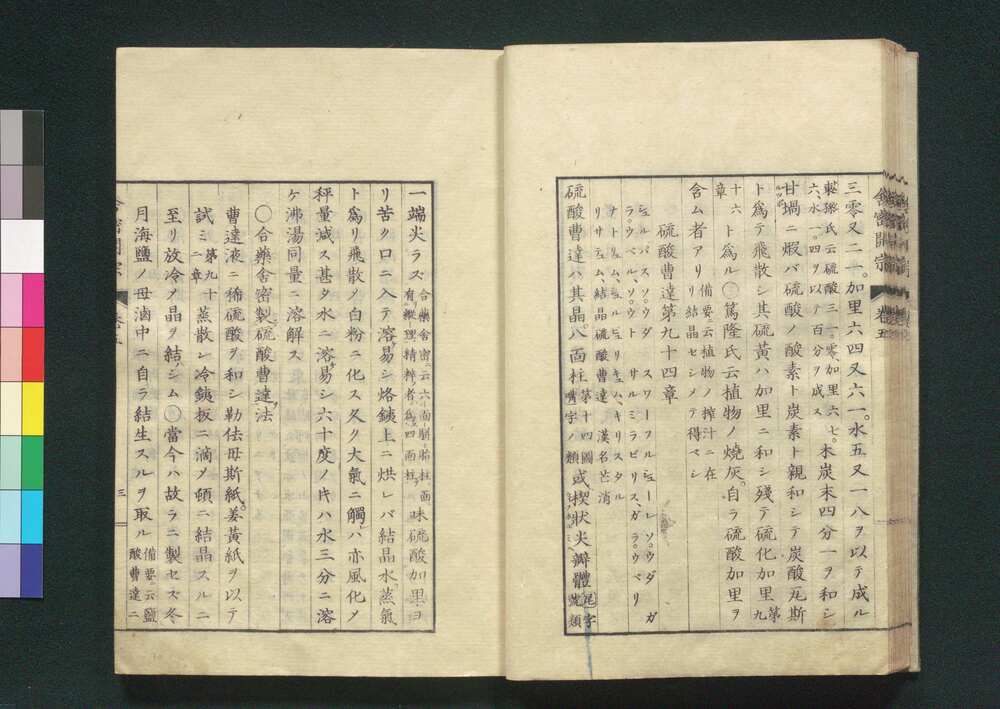 三零又二一。加里六四又六一。水五又一八ヲ以テ成ル
氏云硫酸三一。零、加里六七。木炭末四分一ヲ和シ
六、水一。四ヲ以テ百分ヲ成ス
甘堝ニ煆バ硫酸ノ酸素ト炭素ト親和シテ炭酸瓦斯
ト為テ飛散シ其硫黄ハ加里ニ和シ殘テ硫化加里第九
十六章ト為ル 篤隆氏云植物ノ燒灰自ラ硫酸加里ヲ
含ム者アリ 備要云植物ノ搾汁ニ在リ結晶セシメテ得ベシ
硫酸曹達第九十四章
シュルパスソーダ スワーフルシューレソーウダ ガ
ラーウベルソーウト サルミラビリスガラーウベリ
ナトリュムシュルピュリキュムキリスタル
リサテュム結晶硫酸曹達 漢名芒消
硫酸曹達ハ其晶八面柱第十四圖嘴字ノ類或楔状尖瓣體尾字號類
一端尖ラス合藥舍密云六面扁柱面有縱理精粹者為四面柱味硫酸加里ヨ
リ苦ク口ニ入テ溶易シ烙銕上ニ烘レバ結晶水蒸氣
ト為リ飛散ノ白粉ニ化ス久ク大氣ニ觸ハ亦風化メ
秤量減ス甚タ水ニ溶易シ六十度ノ片ハ水三分ニ溶
ケ沸湯同量ニ溶解ス
〇合藥舍密製硫酸曹達法
曹達液ニ稀硫酸ヲ和シ勒佉母斯紙。姜黃紙ヲ以テ
試ミ第九十二章蒸散シ冷銕板ニ滴メ頓ニ結晶スルニ
至リ放冷メ晶ヲ結シム 當今ハ故ラニ製セズ冬
月海鹽ノ母滷中ニ自ラ結生スルヲ取ル備要云鹽酸曹達ニ
舍密開宗 卷五
三